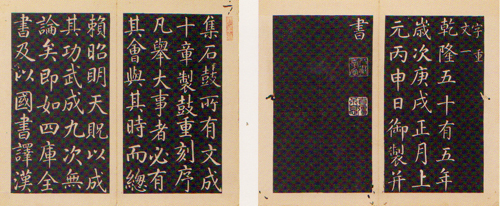 集石鼓所有文成
十章製鼓重刻序
凡舉大事者必有
其會與其時而總
賴昭明天貺以成
其功武成九次無
論矣即如四庫全
書及以國書譯漢
乾隆五十有五年
歲次庚戌正月上
元丙申日御製并
書